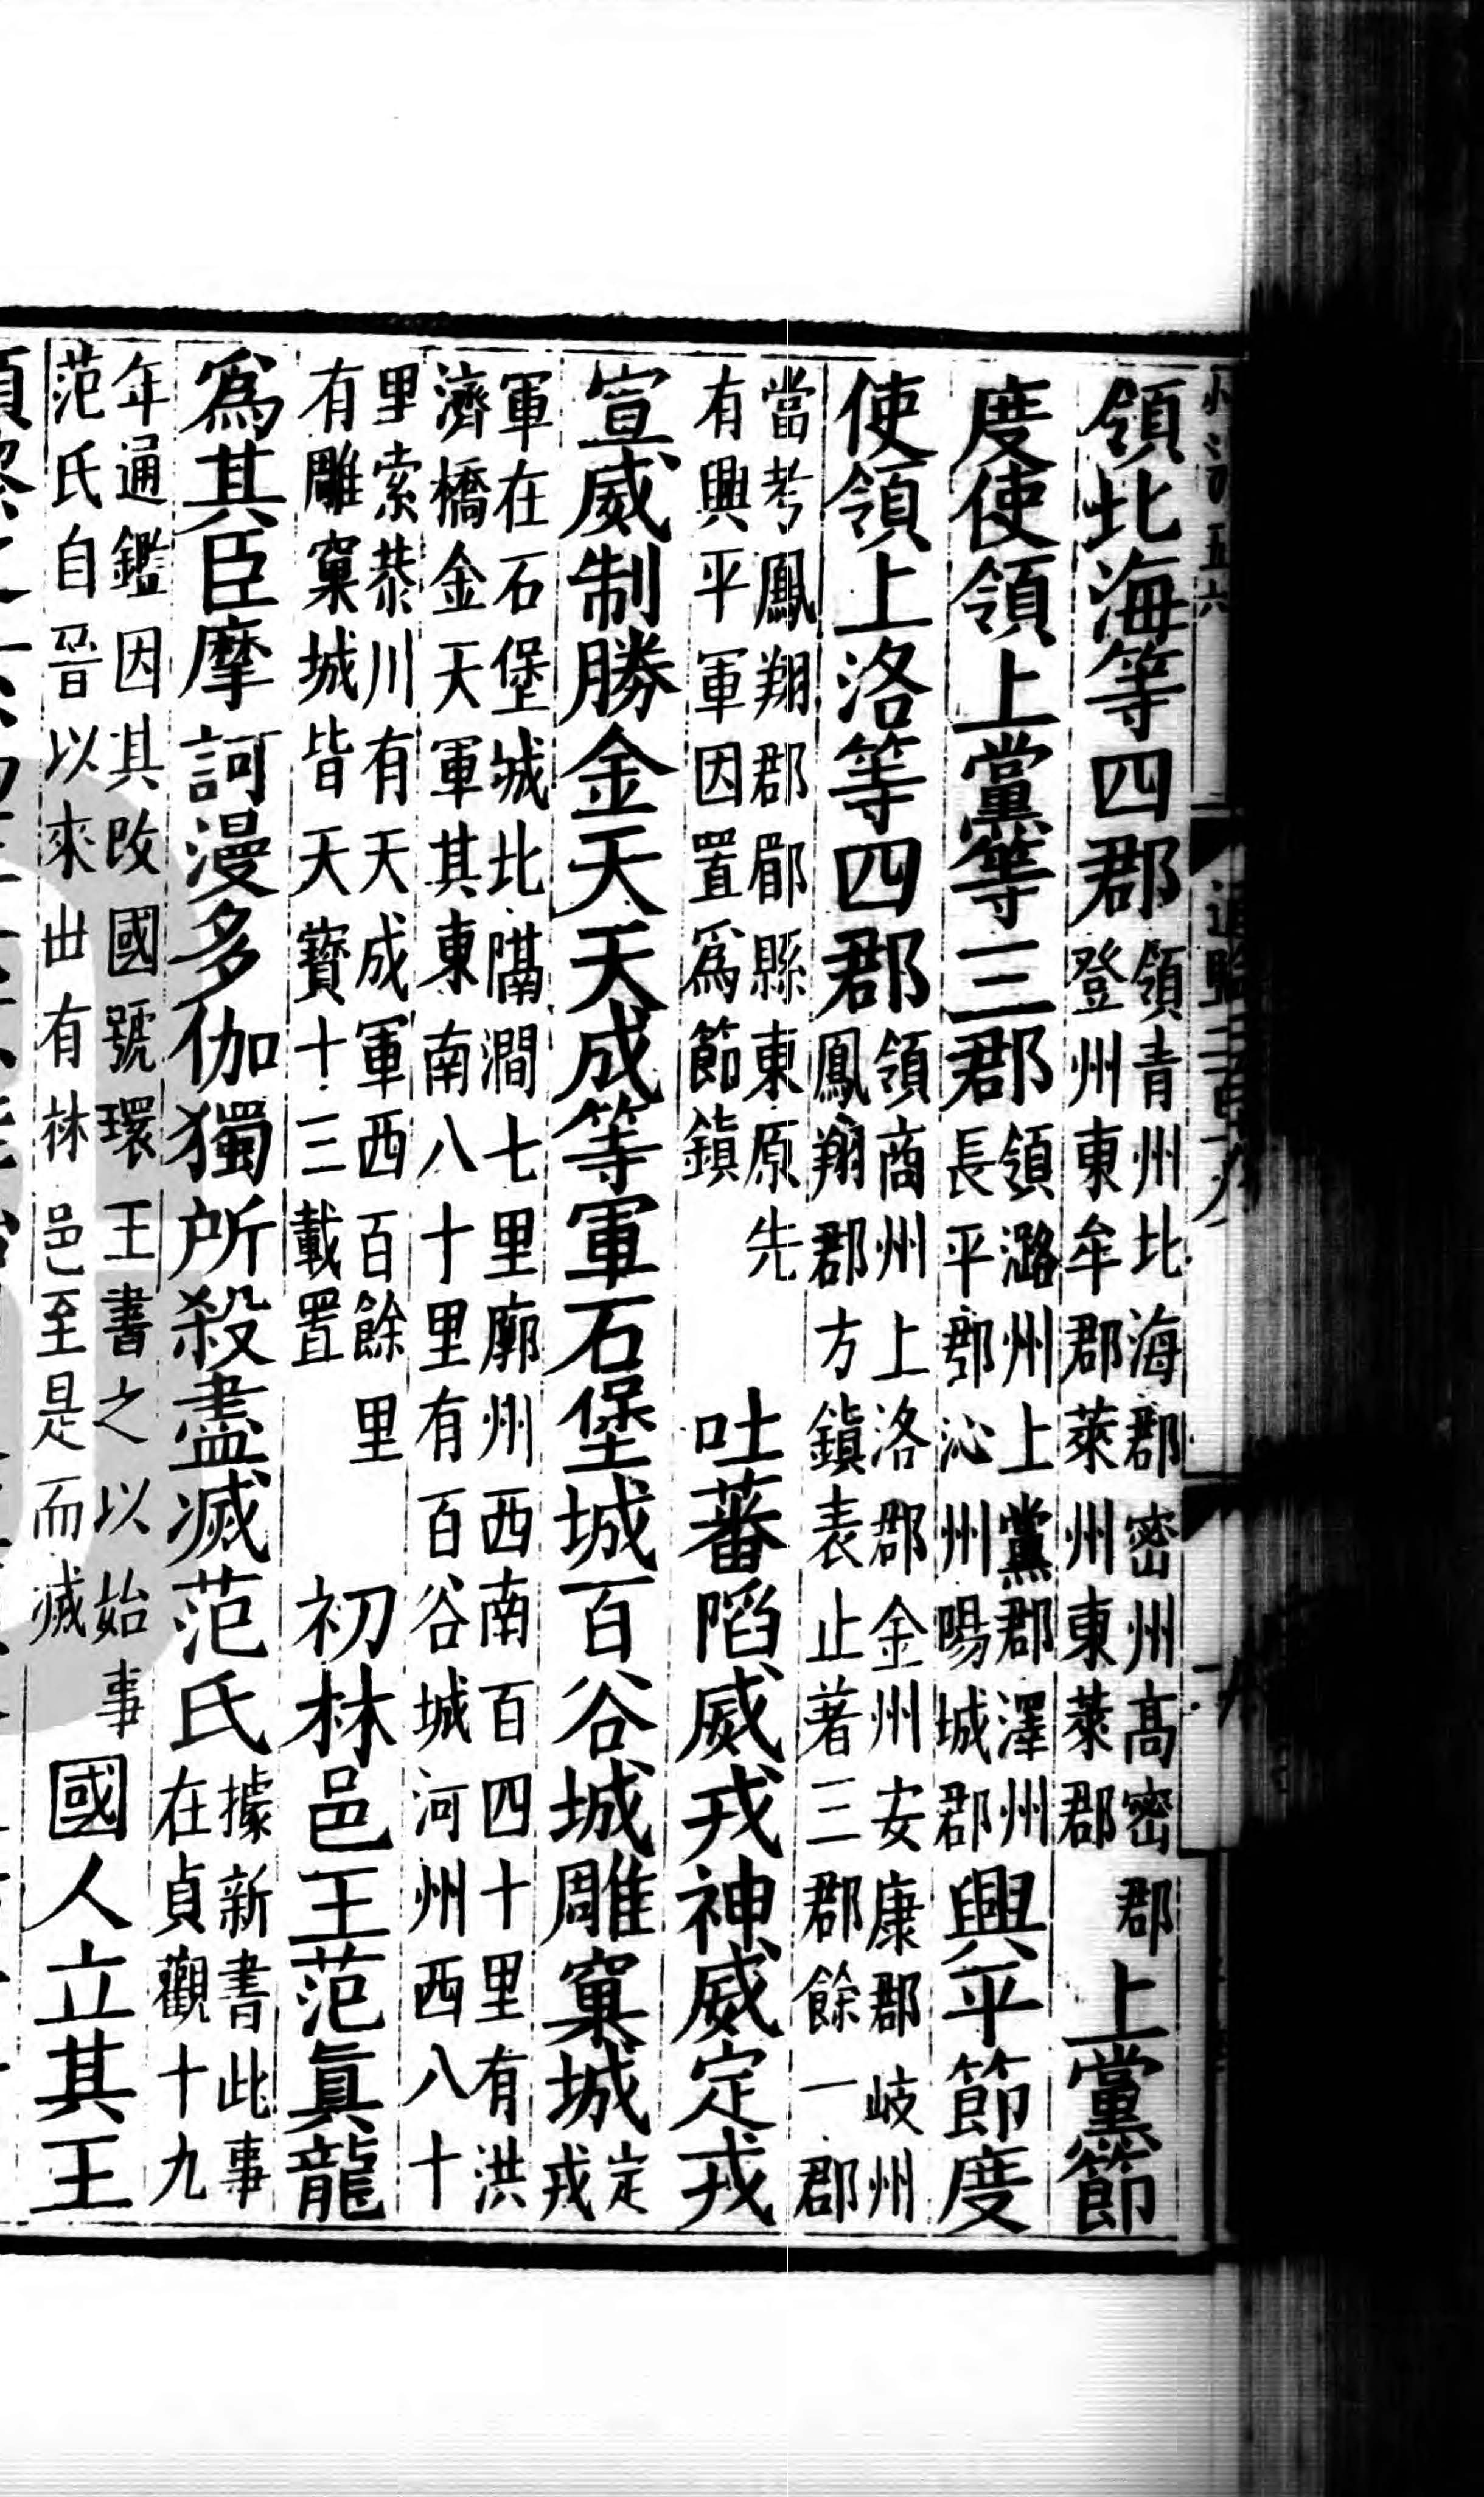 領北海等四郡領青州北海郡密州高密郡登州東牟郡萊州東萊郡上黨節
度使領上黨等三郡領潞州上黨郡澤州長平郡沁州陽城郡興平節度
使領上洛等四郡領商州上洛郡金州安康郡岐州鳳翔郡方鎮表止著三郡餘一郡
當考鳳翔郡郿縣東原先有興平軍因置爲節鎮吐蕃䧟威戎神威定戎
宣威制勝金天天成等軍石堡城百谷城雕窠城定戎
軍在石堡城北隔澗七里廓州西南百四十里有洪濟橋金天軍其東南八十里有百谷城河州西八十
里索恭川有天成軍西百餘里有雕窠城皆天寶十三載置初林邑王范眞龍
爲其臣摩訶漫多伽獨所殺盡滅范氏據新書此事在貞觀十九
年通鑑因其改國號環王書之以始事范氏自晉以來世有林邑至是而滅國人立其王